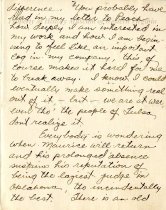 difference. You probably have
read in my letter to Peach
how deeply I am interested in
my work and how I am begin-
ning to feel like an important
cog in my company, this, of
course makes it hard for me
to break away. I know I could
eventually make something real
out of it - but - we are
tho' the people of Tulsa
don't realize it.
Everybody is wondering
when Maurice will return
and his prolonged absence
sustains his reputation of
being the laziest judge in
Oklahoma, tho incidentally
the best. There is an old